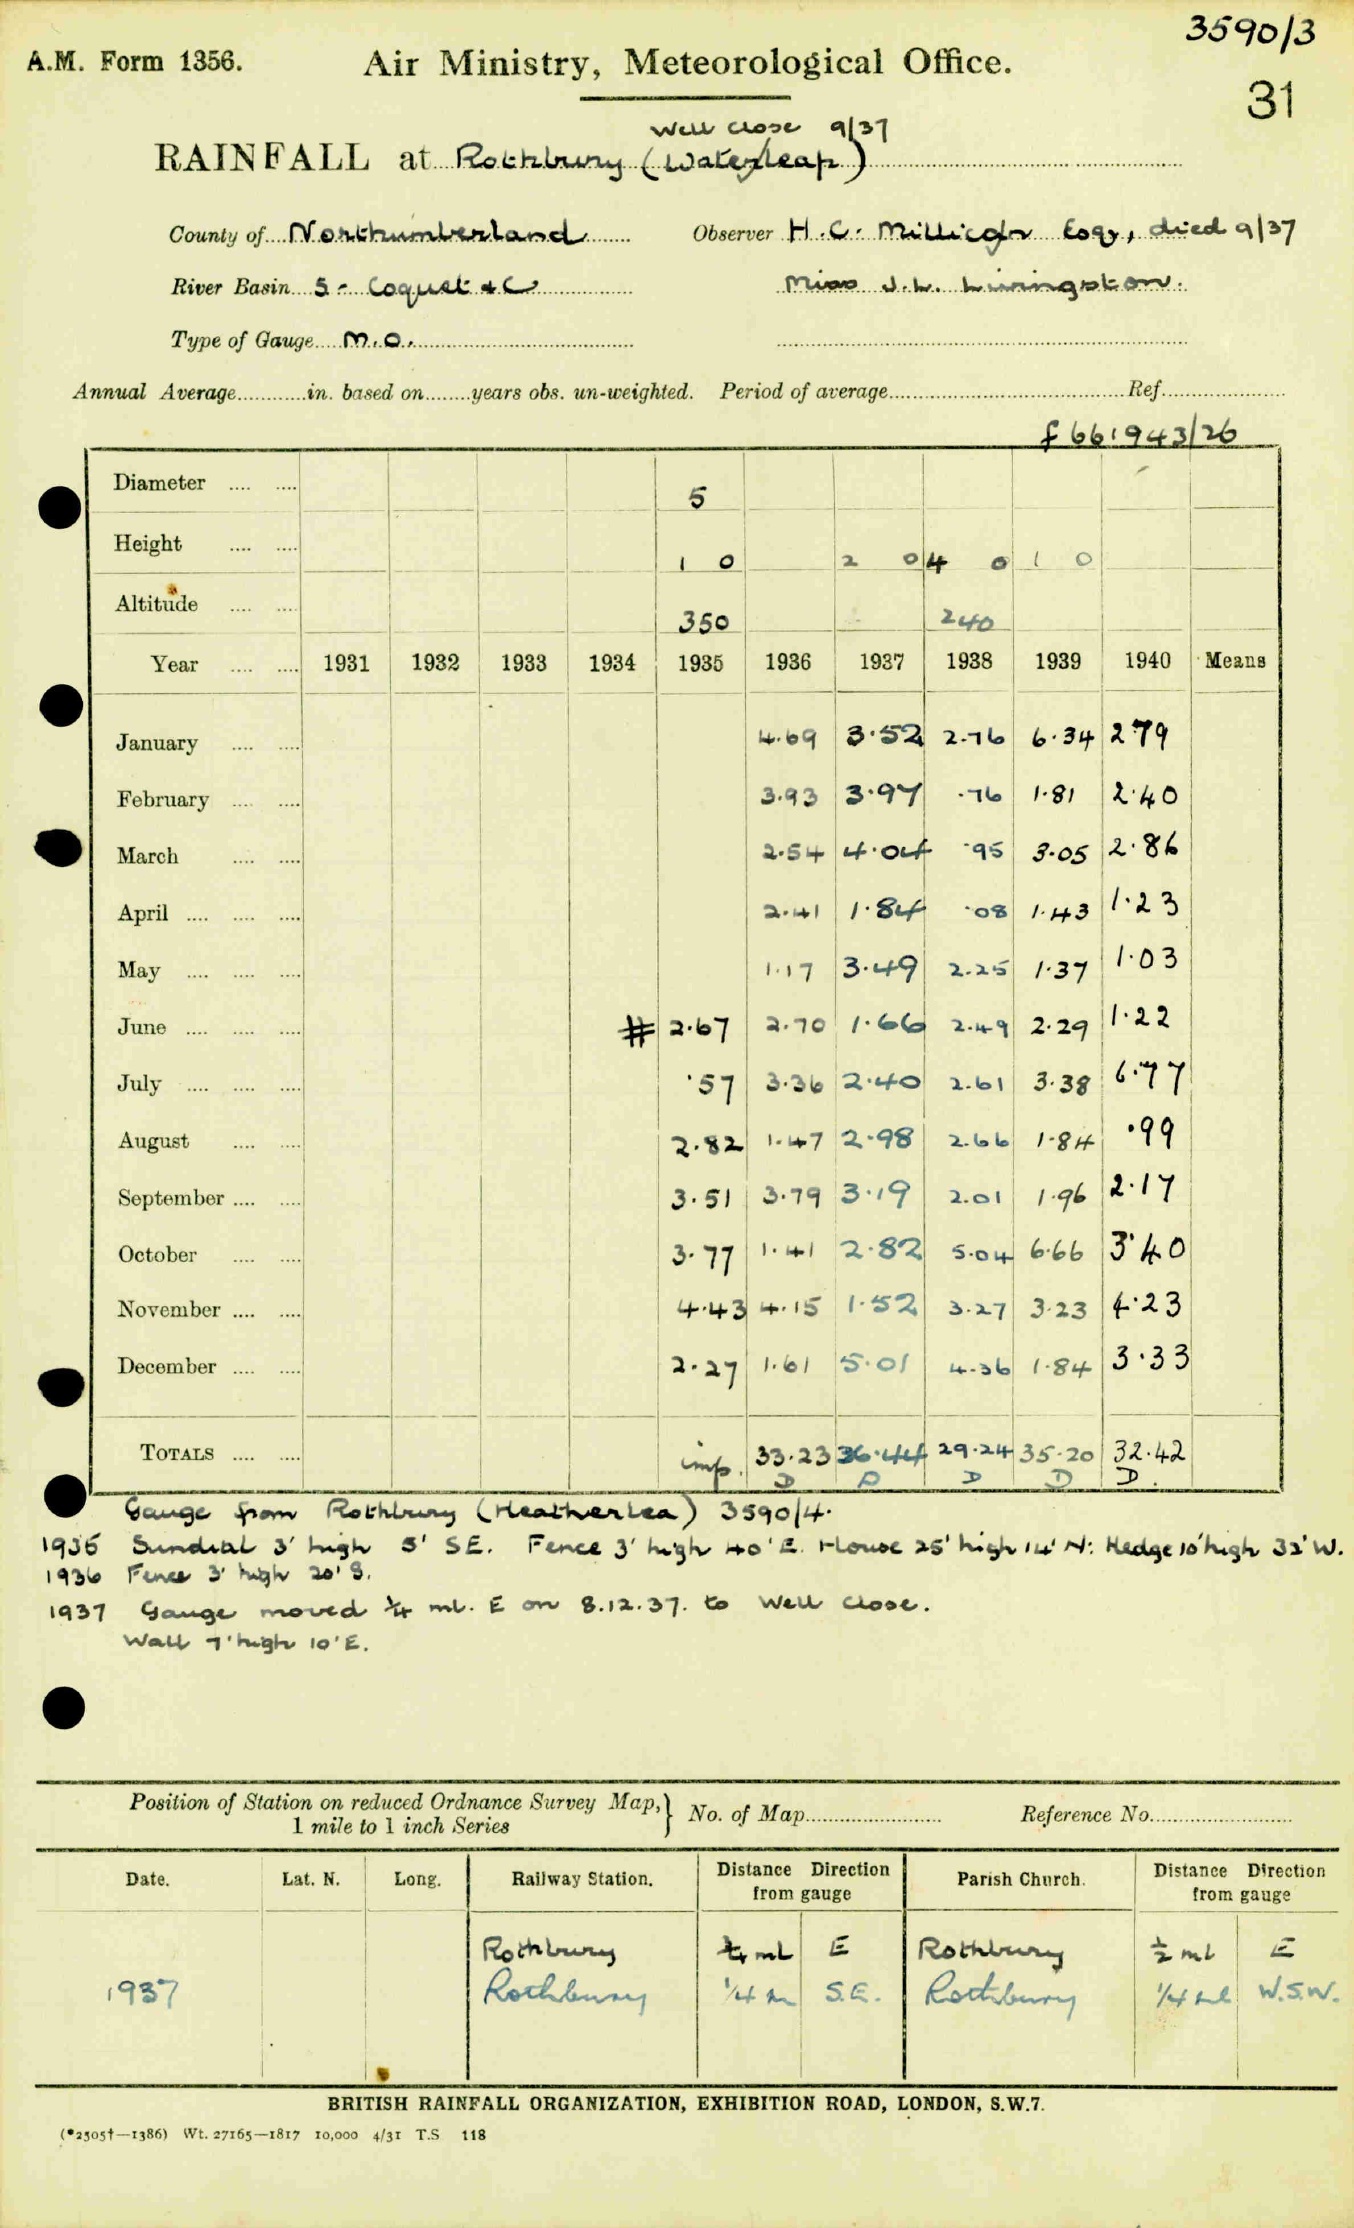 3590/3
A.M. Form 1356. Air Ministry, Meteorological Office.
31
Well Close 9/37
RAINFALL at Rothbury (Waterleap)
County of Northumberland Observer H.C. Milligan Esq, died 9/37
River Basin 5 - Coquet & C Miss J.L. Livingston.
Type of Gauge M.O.
Annual Average in. based on years obs. un-weighted. Period of average Ref.
f 661943/26
Diameter 5
Height 1 0 2 0 4 0 1 0
Altitude 350 240
Year 1931 1932 1933 1934 1935 1936 1937 1938 1939 1940 Means
January 4.69 3.52 2.76 6.34 2.79
February 3.93 3.97 .76 1.81 2.40
March 2.54 4.04 .95 3.05 2.86
April 2.41 1.84 .08 1.43 1.23
May 1.17 3.49 2.25 1.37 1.03
June # 2.67 2.70 1.66 2.49 2.29 1.22
July .57 3.36 2.40 2.61 3.38 6.77
August 2.82 1.47 2.98 2.66 1.84 .99
September 3.51 3.79 3.19 2.01 1.96 2.17
October 3.77 1.41 2.82 5.04 6.66 3.40
November 4.43 4.15 1.52 3.27 3.23 4.23
December 2.27 1.61 5.01 4.36 1.84 3.33
TOTALS imp. 33.23 36.44 29.24 35.20 32.42
D D D D D.
Gauge from Rothbury (Heatherlea) 3590/4.
1935 Sundial 3' high 5' SE. Fence 3' high 40' E. House 25' high 14' N: Hedge 10' high 32' W.
1936 Fence 3' high 20' S.
1937 Gauge moved ¼ ml. E on 8.12.37. to Well Close.
Wall 7' high 10' E.
Position of Station on reduced Ordnance Survey Map,} No. of Map Reference No.
1 mile to 1 inch Series
Date. Lat. N. Long. Railway Station. Distance Direction from gauge Parish Church. Distance Direction from gauge
Rothbury ¾ ml E Rothbury ½ ml E
1937 Rothbury 1/4 m S.E. Rothbury 1/4 ml W.S.W.
BRITISH RAINFALL ORGANIZATION, EXHIBITION ROAD, LONDON, S.W.7.
(*2505†—1386) Wt. 27165—1817 10,000 4/31 T.S 118